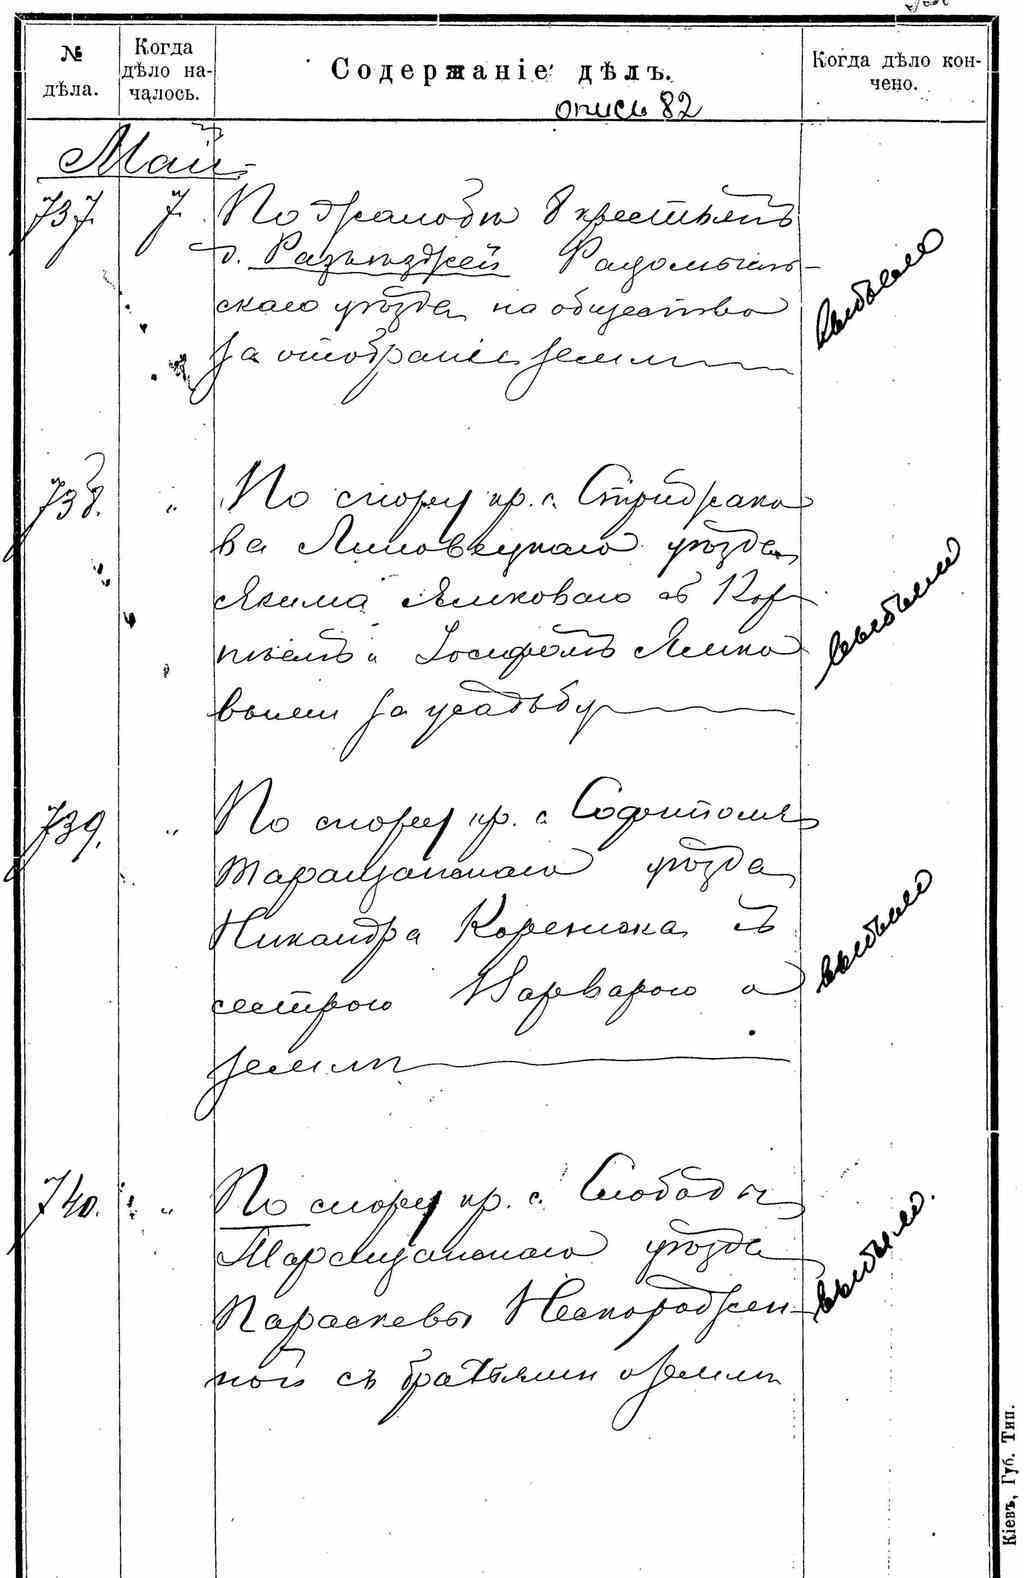 №
дѣла.
Когда
дѣло на-
чалось.
Содержаніе дѣлъ.
Когда дѣло кон-
чено.
опись 82
Май
737. 7. По жалобѣ 8 крестьянъ
д. Разъѣзжей Радомысль-
скаго уѣзда на общество
за отобраніе земли
выбыло
738. " По спору кр. с. Стрижако
ва Липовецкаго уѣзда
Якима Яликоваго съ Кор
нѣемъ и Іосифомъ Ялико
выми за усадьбу
выбыли
739. " По спору кр. с. Софиполя
Таращанскаго уѣзда
Никандра Коренюка съ
сестрою Варварою о
землѣ
выбыло
740. " По спору кр. с. Слободы
Таращанскаго уѣзда
Параскевы Нескорожен-
ной съ братьями о землѣ
выбыло.
Кіевъ, Губ. Тип.